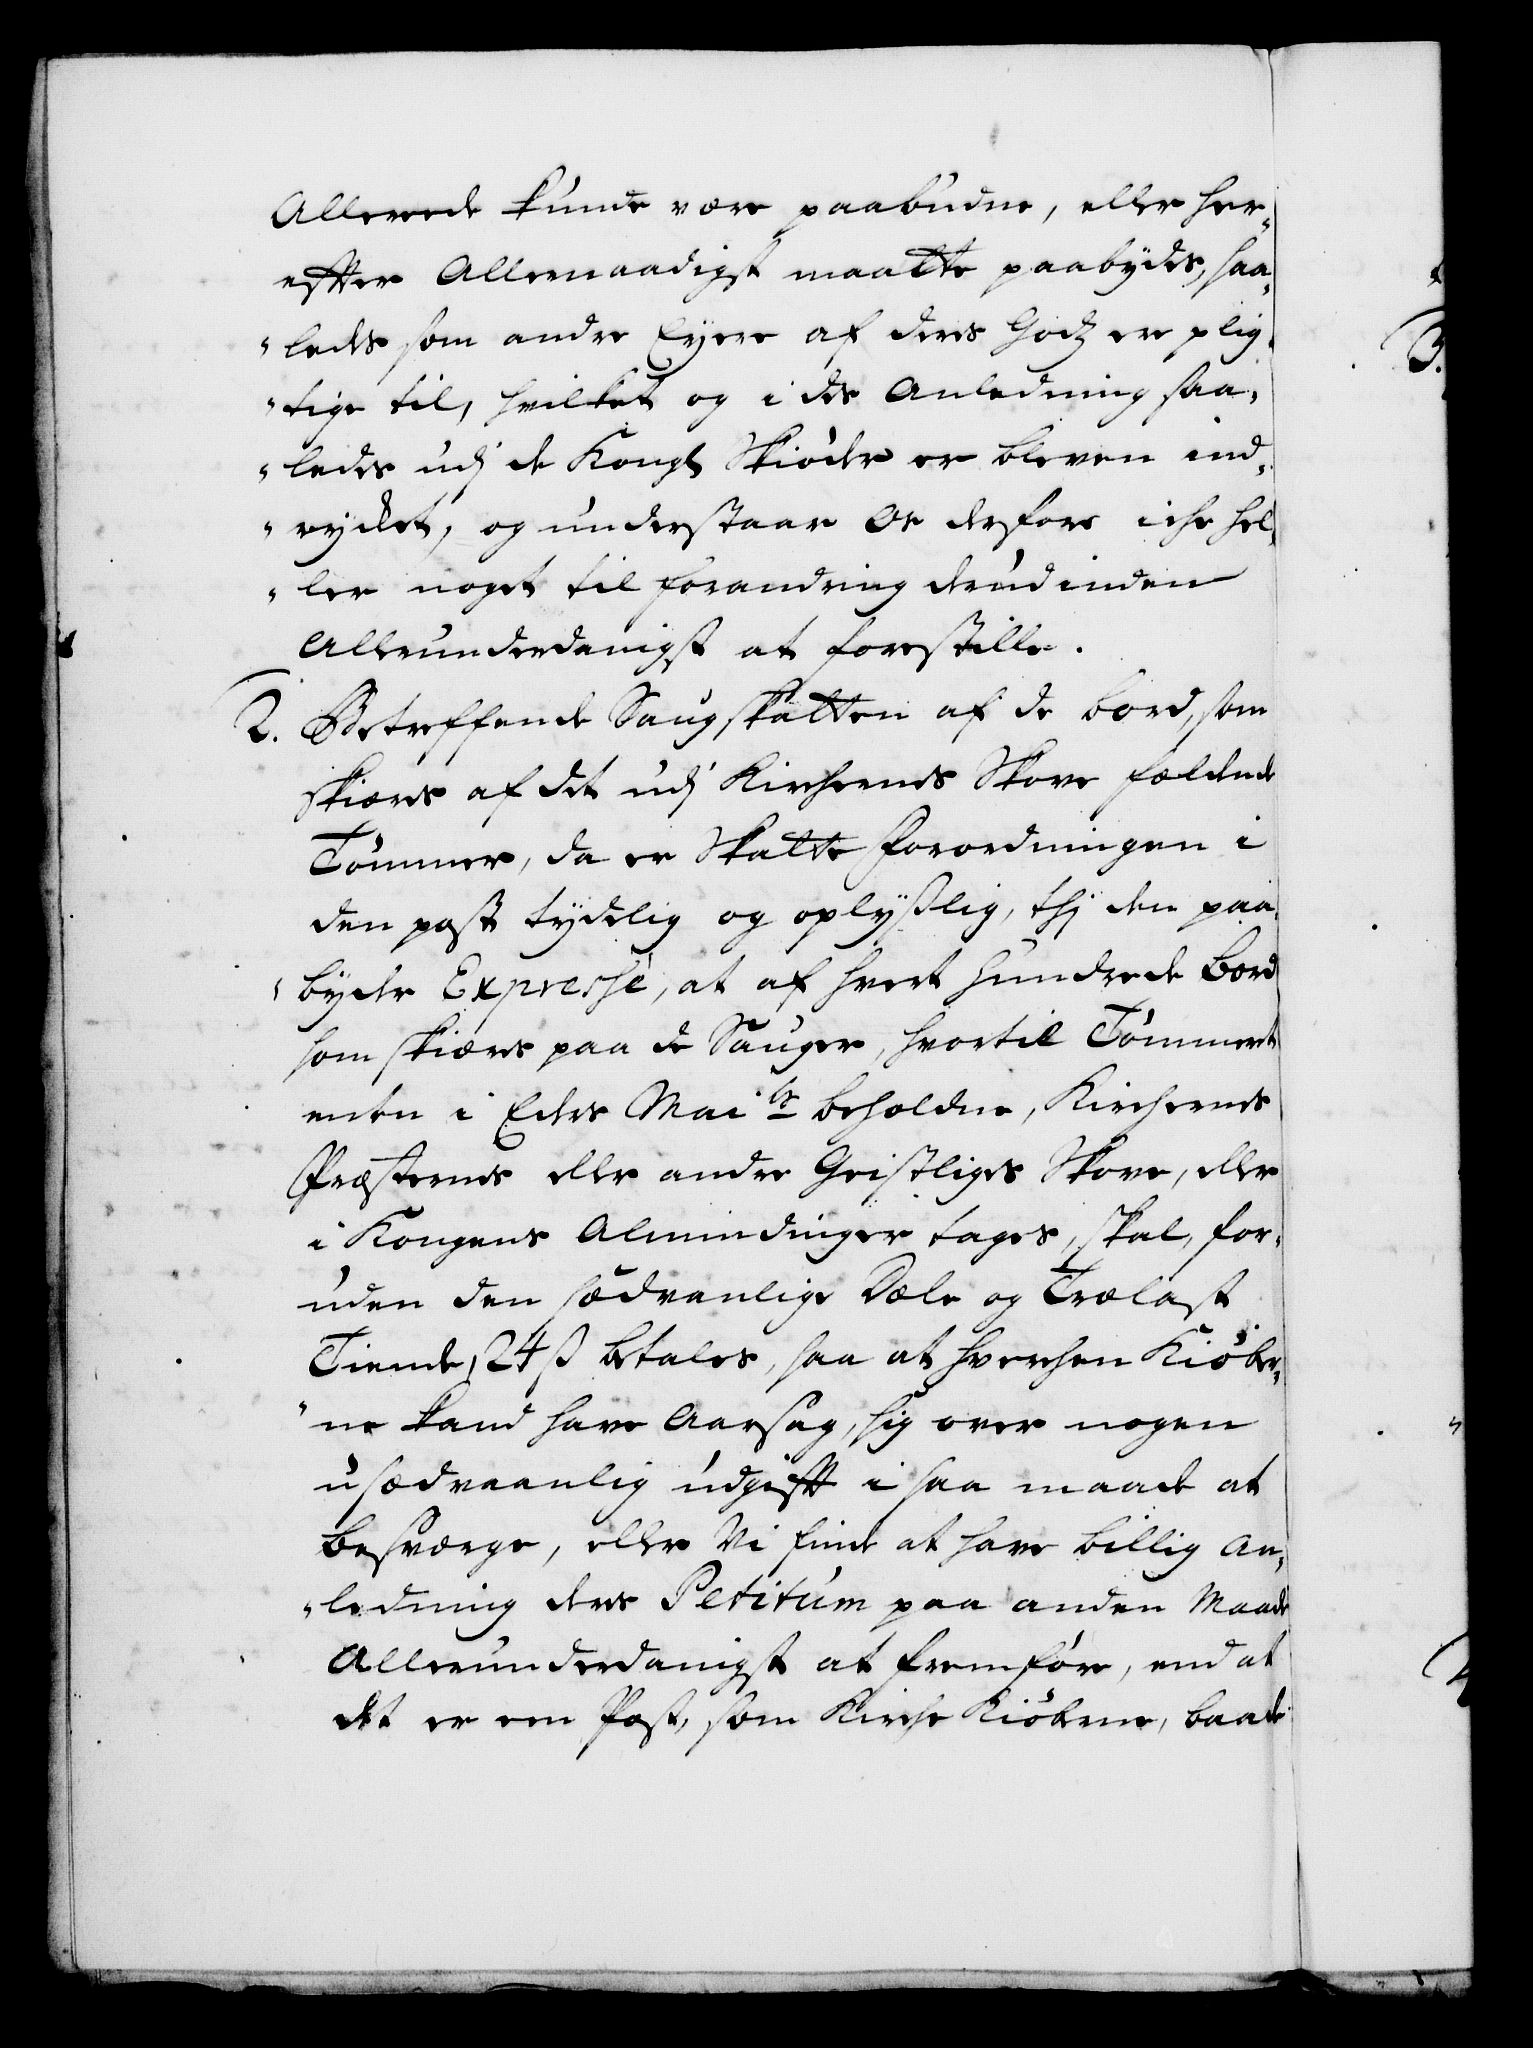 Allereede kunde være paabudne, eller her-
effter Allernaadigst maatte paabydes, saa-
"ledes som andre Eyere af deres Godz ere plig-
"tige til, hvilket og i des Anledning saa-
"ledes udj de Kongl Skiøder er bleven ind-
"rycket, og understaar Os derfore iche hel-
"ler noget til forandring derudinden
Allerunderdanigst at forestille.
2. Betreffende Saugskatten af de bord, som
skiæres af det udj Kirchernes Skove fældende
Tømmer, da er Skatte Forordningen i
den post tydelig og oplyslig, thj den paa-
"byder Expresse, at af hvert hundrede Bord
som skiæres paa de Sauger, hvortil Tømmeret
enten i Eders Maitz beholdne, Kirchernes
Præsternes eller andre Geistliges Skove, eller
i Kongens Almindinger tages, skal, for-
uden den sædvanlige Dæle og Trælast
Tiende, 24 ß betales, saa at hverchen Kiøber-
"ne kand have Aarsag, sig over nogen
usædvaanlig udgifft i saa maade at
besværge, eller Vi finde at have billig An-
"ledning deres Petitum paa anden Maade
Allerunderdanigst at fremføre, end at
det er een Post, som Kirche Kiøberne, baade
3.